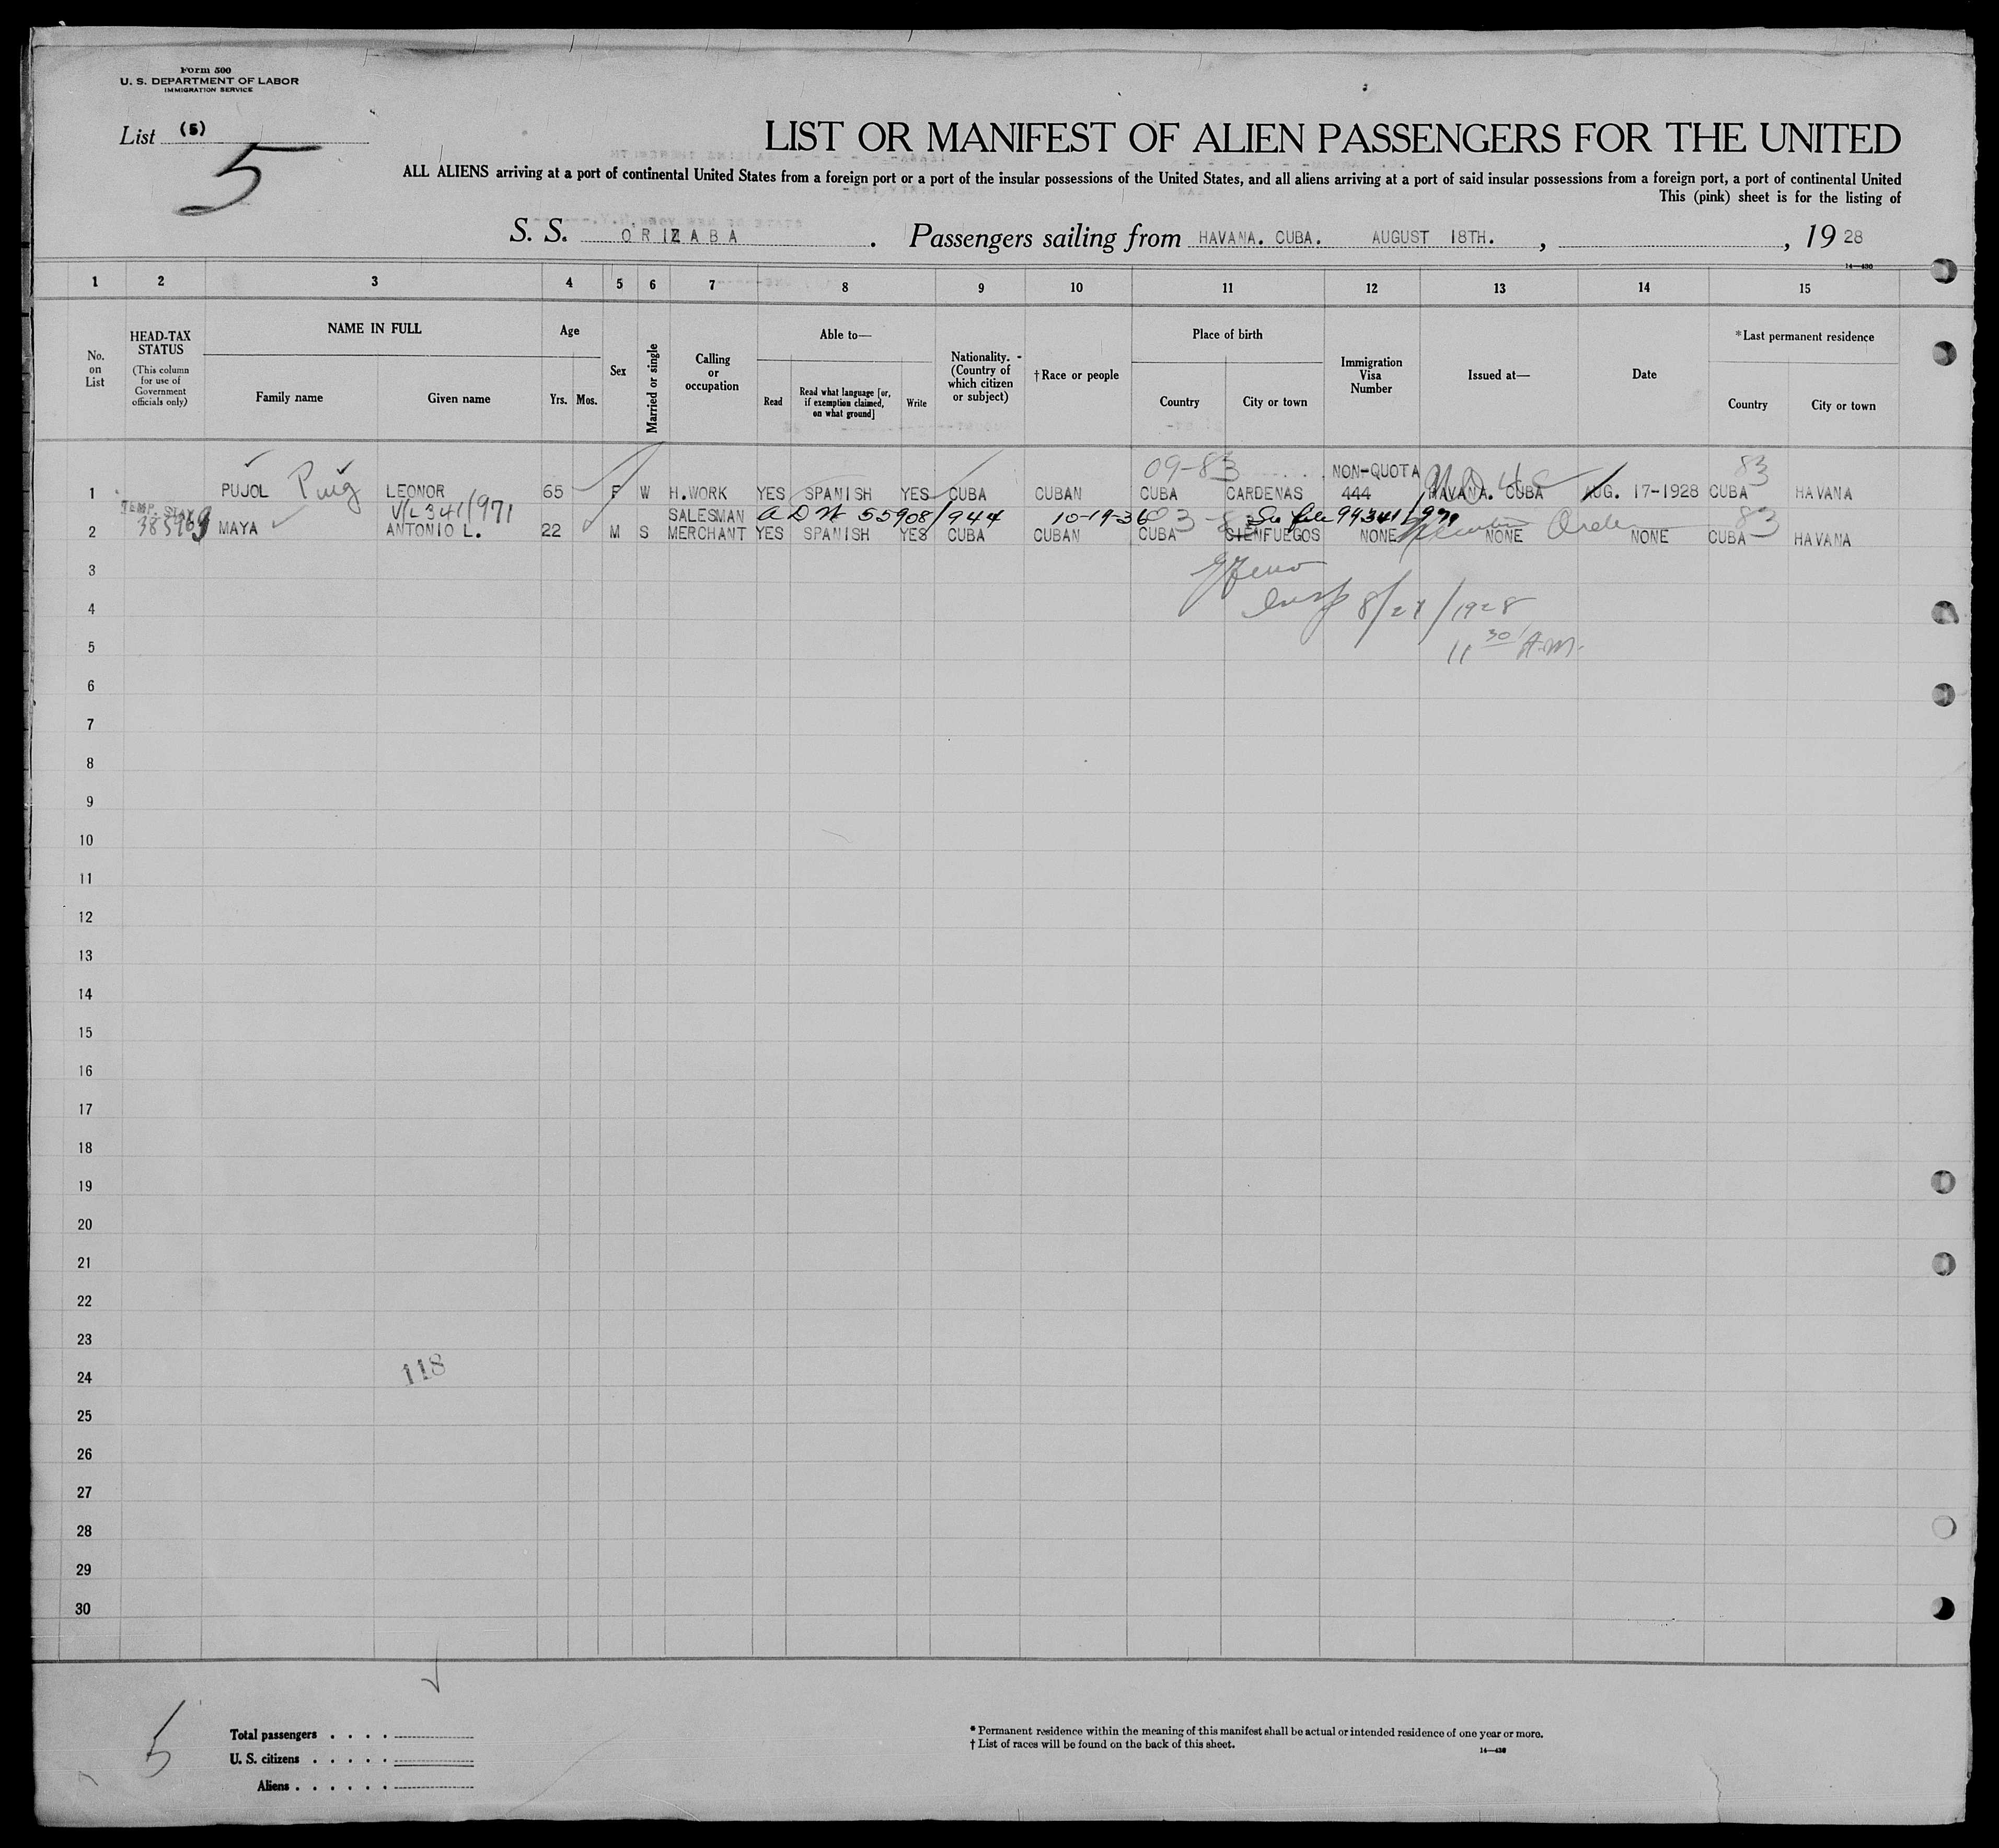 Form 500
U. S. DEPARTMENT OF LABOR
IMMIGRATION SERVICE
List (5)
5
LIST OR MANIFEST OF ALIEN PASSENGERS FOR THE UNITED
ALL ALIENS arriving at a port of continental United States from a foreign port or a port of the insular possessions of the United States, and all aliens arriving at a port of said insular possessions from a foreign port, a port of continental United
This (pink) sheet is for the listing of
S. S. ORIZABA . Passengers sailing from HAVANA. CUBA. AUGUST 18TH. , , 19 28
14—430
1 2 3 4 5 6 7 8 9 10 11 12 13 14 15
No. on List
HEAD-TAX STATUS
(This column for use of Government officials only)
NAME IN FULL
Family name
Given name
Age
Yrs. Mos.
Sex
Married or single
Calling or occupation
Able to—
Read
Read what language [or, if exemption claimed, on what ground]
Write
Nationality. (Country of which citizen or subject)
† Race or people
Place of birth
Country
City or town
Immigration Visa Number
Issued at—
Date
*Last permanent residence
Country
City or town
09-83 NON-QUOTA 83
1 PUJOL Puig LEONOR 65 F W H.WORK YES SPANISH YES CUBA CUBAN CUBA CARDENAS 444 HAVANA. CUBA AUG. 17-1928 CUBA HAVANA
TEMP. STAY V/L 341/971 SALESMAN 55908/944 10-19-36 See file 99341/971 83
2 MAYA ANTONIO L. 22 M S MERCHANT YES SPANISH YES CUBA CUBAN CUBA CIENFUEGOS NONE NONE NONE CUBA HAVANA
3
Insp 8/21/1928
4
11 30 A.M.
5
6
7
8
9
10
11
12
13
14
15
16
17
18
19
20
21
22
23
24 118
25
26
27
28
29
30
5
Total passengers . . . .
U. S. citizens . . . . .
Aliens . . . . . .
* Permanent residence within the meaning of this manifest shall be actual or intended residence of one year or more.
† List of races will be found on the back of this sheet.
14—430